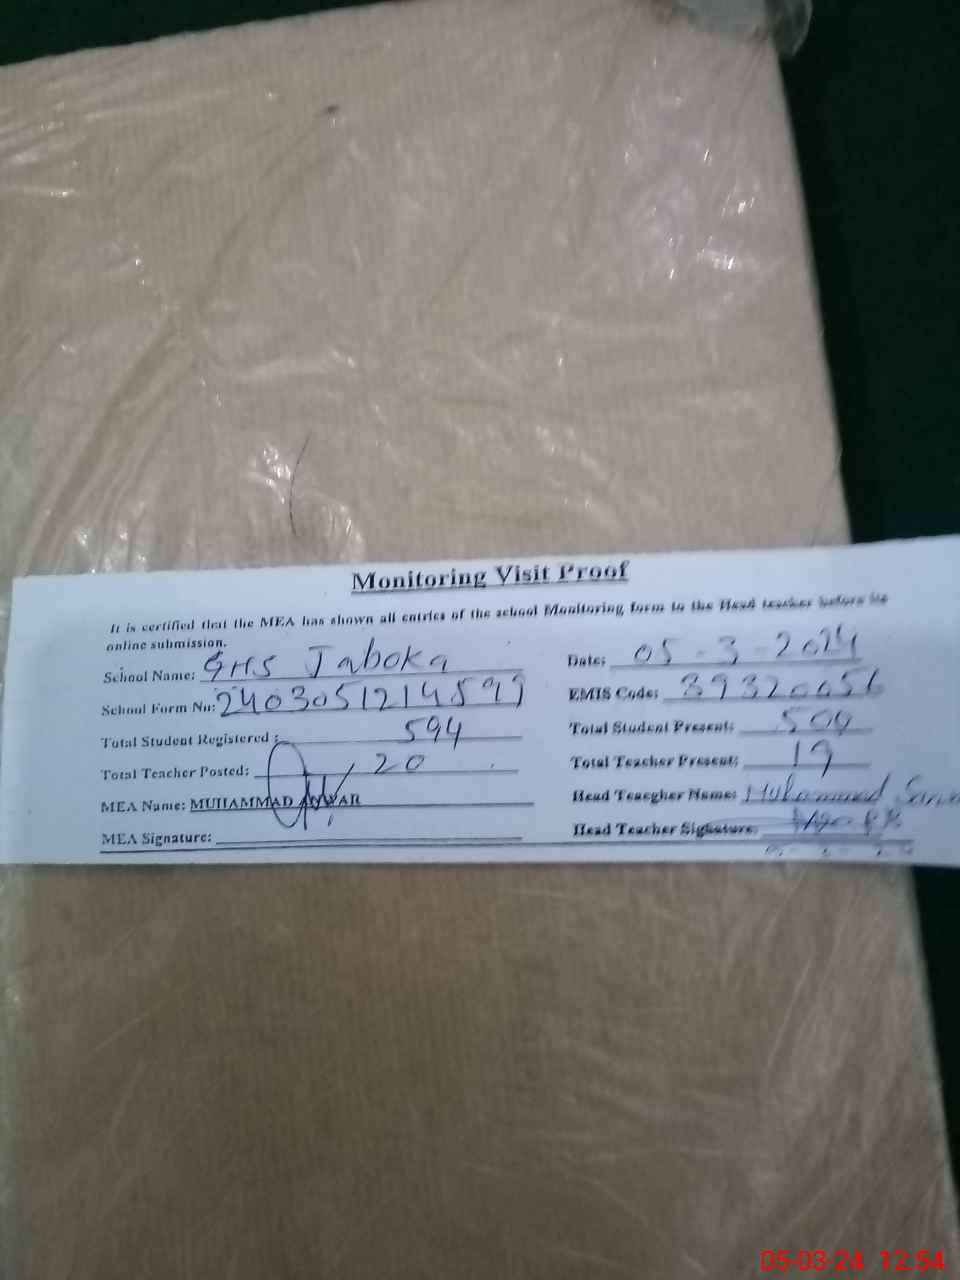 Monitoring Visit Proof
It is certified that the MEA has shown all entries of the school Monitoring form to the Head teacher before his
online submission.
School Name: GHS Jaboka
Date: 05-3-2024
School Form No: 2403051214599
EMIS Code: 39320056
Total Student Registered : 594
Total Student Present: 504
Total Teacher Posted: 20
Total Teacher Present: 19
MEA Name: MUHAMMAD ANWAR
Head Teacgher Name: Muhammad
MEA Signature:
Head Teacher Signature:
05-03-24 12:54